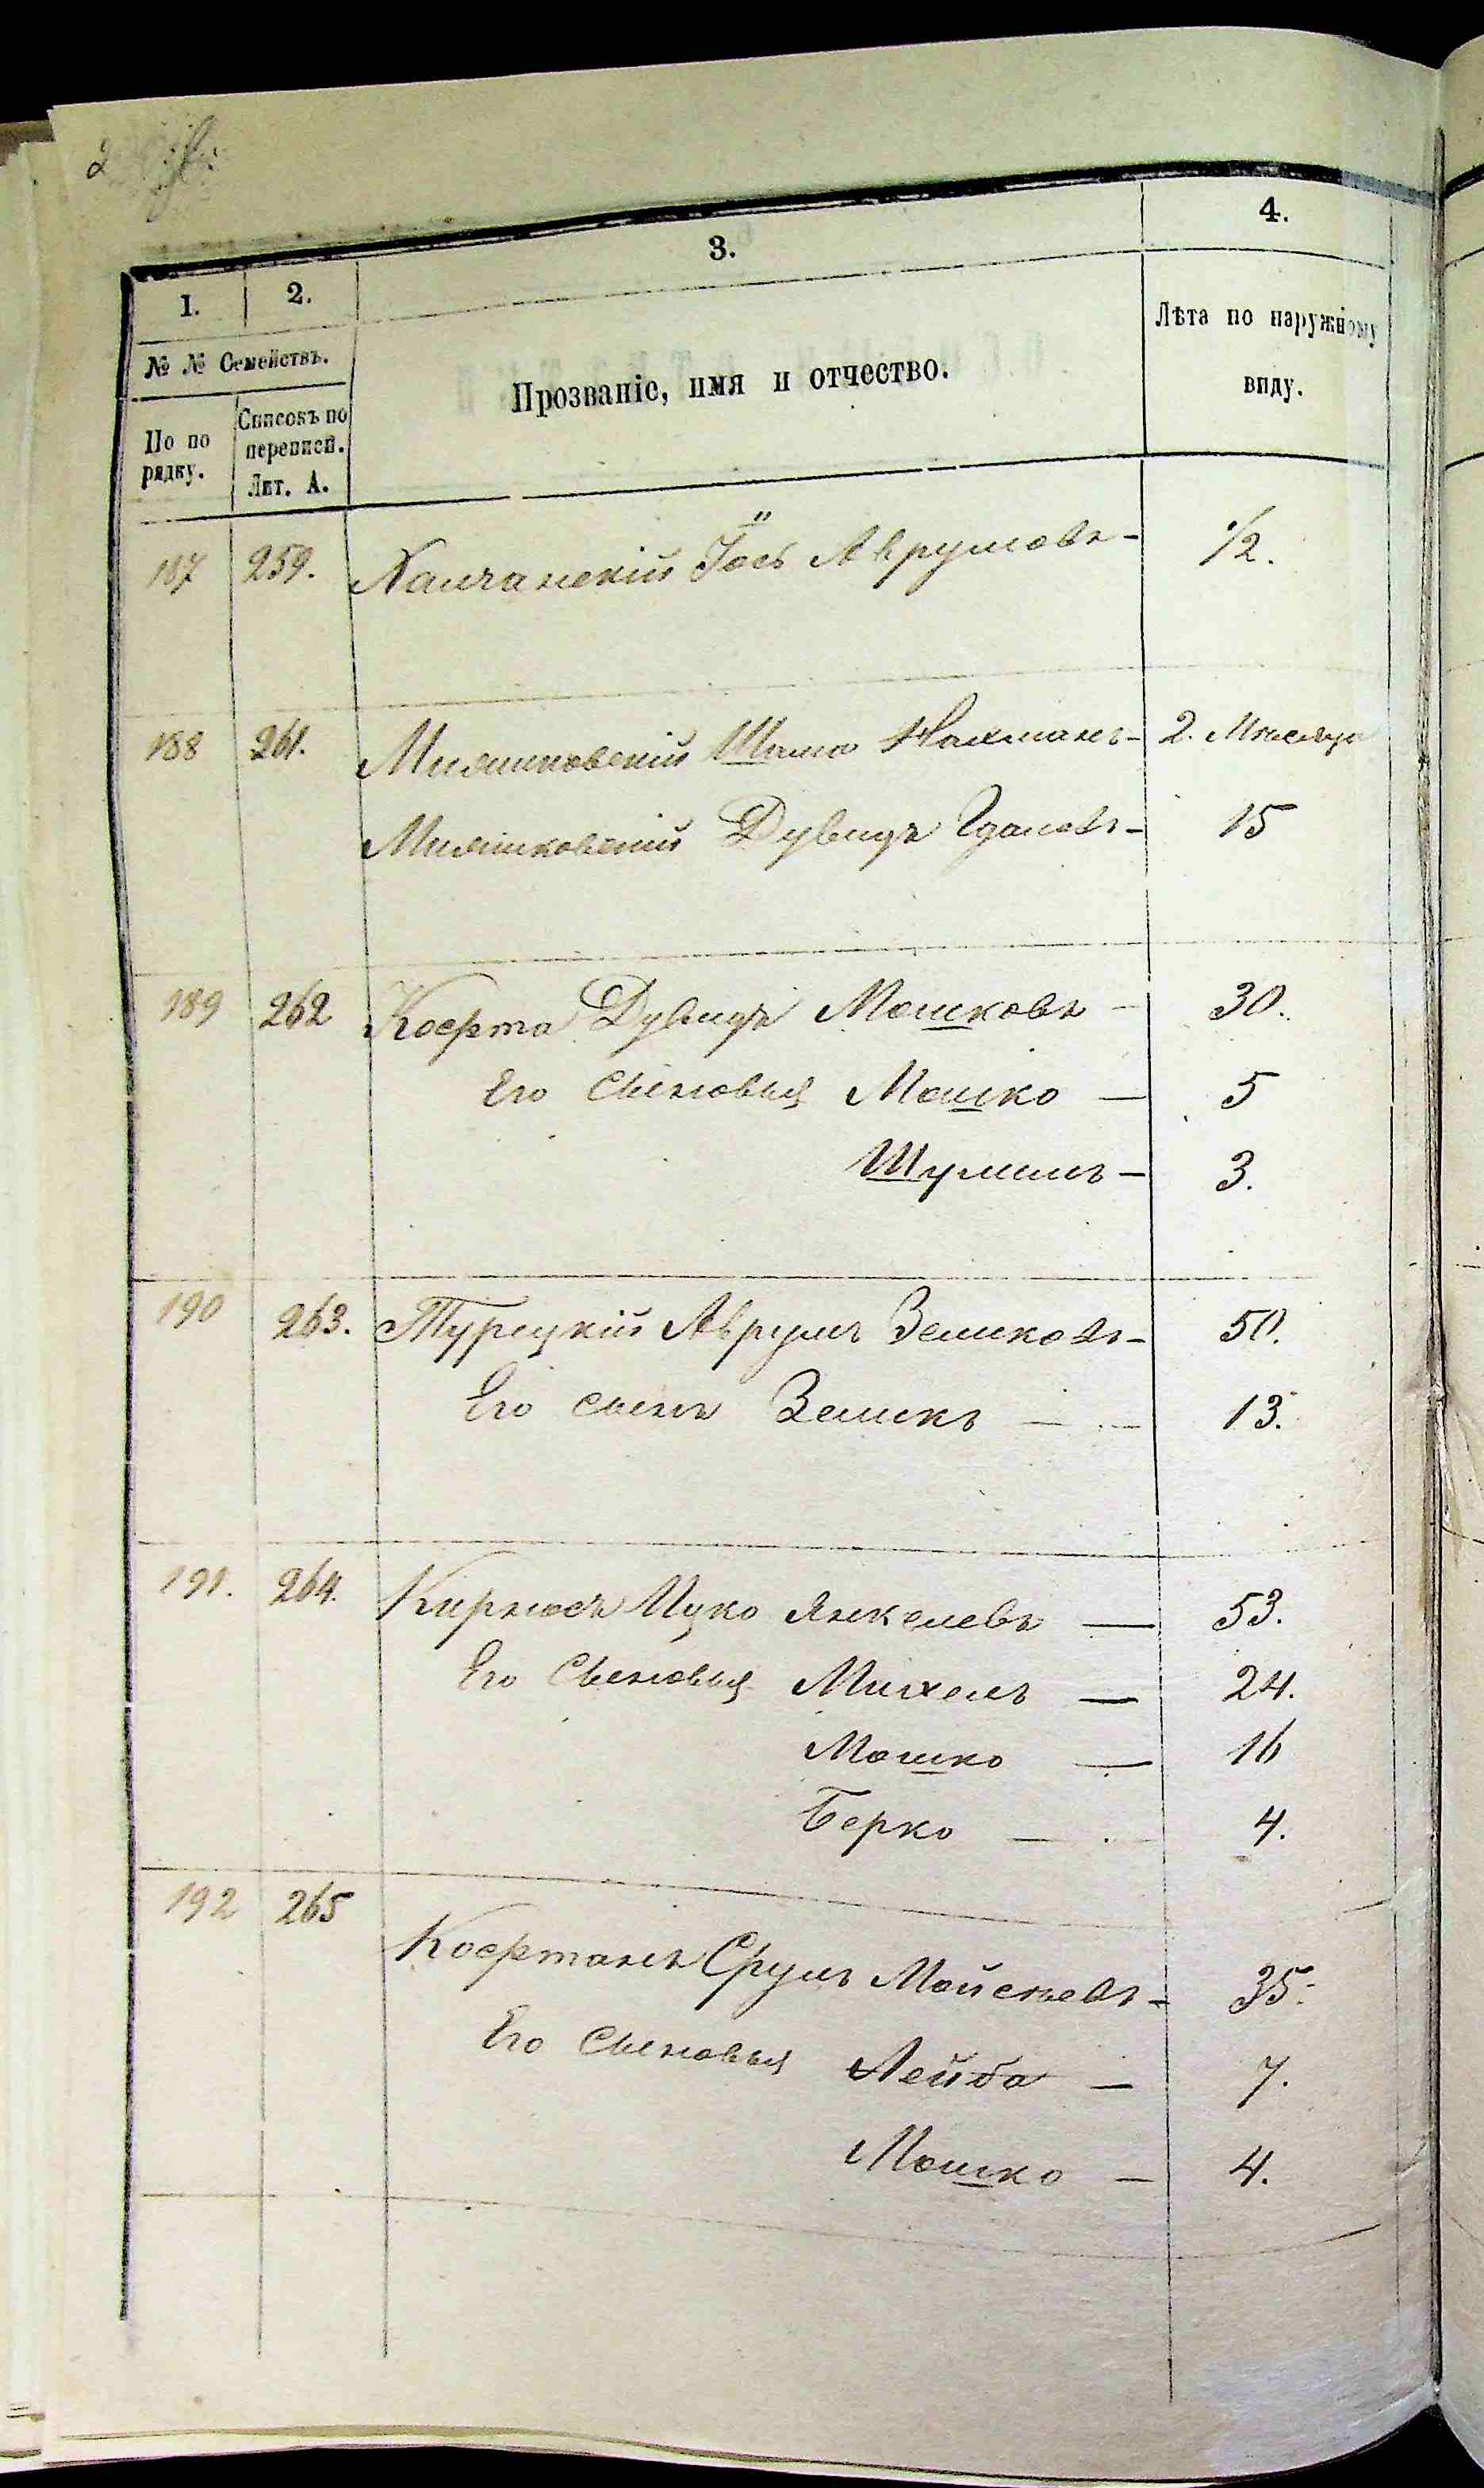 1. 2. 3. 4.
№ № Семействъ.
По порядку. Списокъ по переписи. Лит. А. Прозваніе, имя и отчество. Лѣта по наружному виду.
187 259. Халчанскій Іось Аврумовъ - 1/2.
188 261. Милишковскій Шама Нахманъ - 2. Мѣсяца
Милишковскій Дувидъ Гдаловъ - 15
189 262 Коерта Дувидъ Мошковъ - 30.
Его сыновья Мошко — 5
Шулимъ - 3.
190 263. Турецкій Аврумъ Зеликовъ - 50.
Его сынъ Зеликъ — 13.
191. 264. Кирносъ Ицко Янкелевъ — 53.
Его Сыновья Михель — 24.
Мошко — 16
Берко — 4.
192 265
Коерманъ Срулъ Мойсеевъ - 35.
Его Сыновья Лейба — 7.
Мошко — 4.